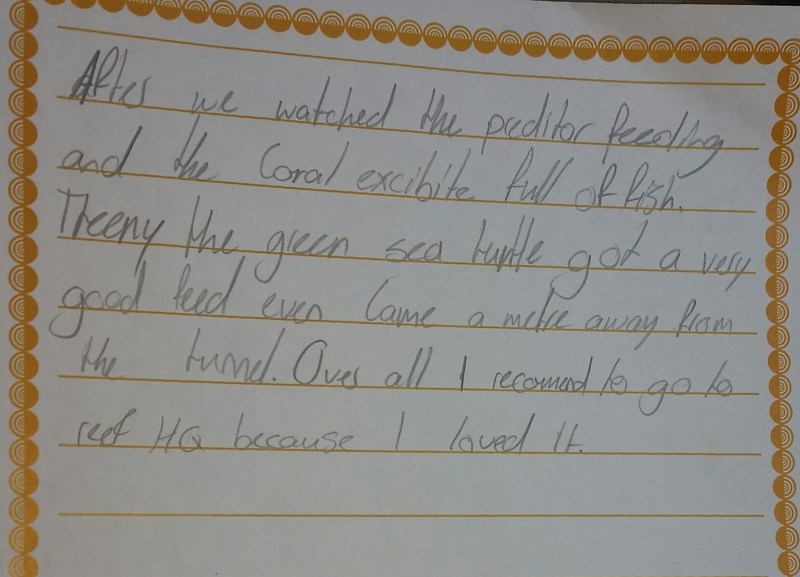 After we watched the preditor feeding
and the Coral excibite full of fish.
Treeny the green sea turtle got a very
good feed even Came a metre away from
the tunnel. Over all I recomend to go to
reef HQ because I loved It.